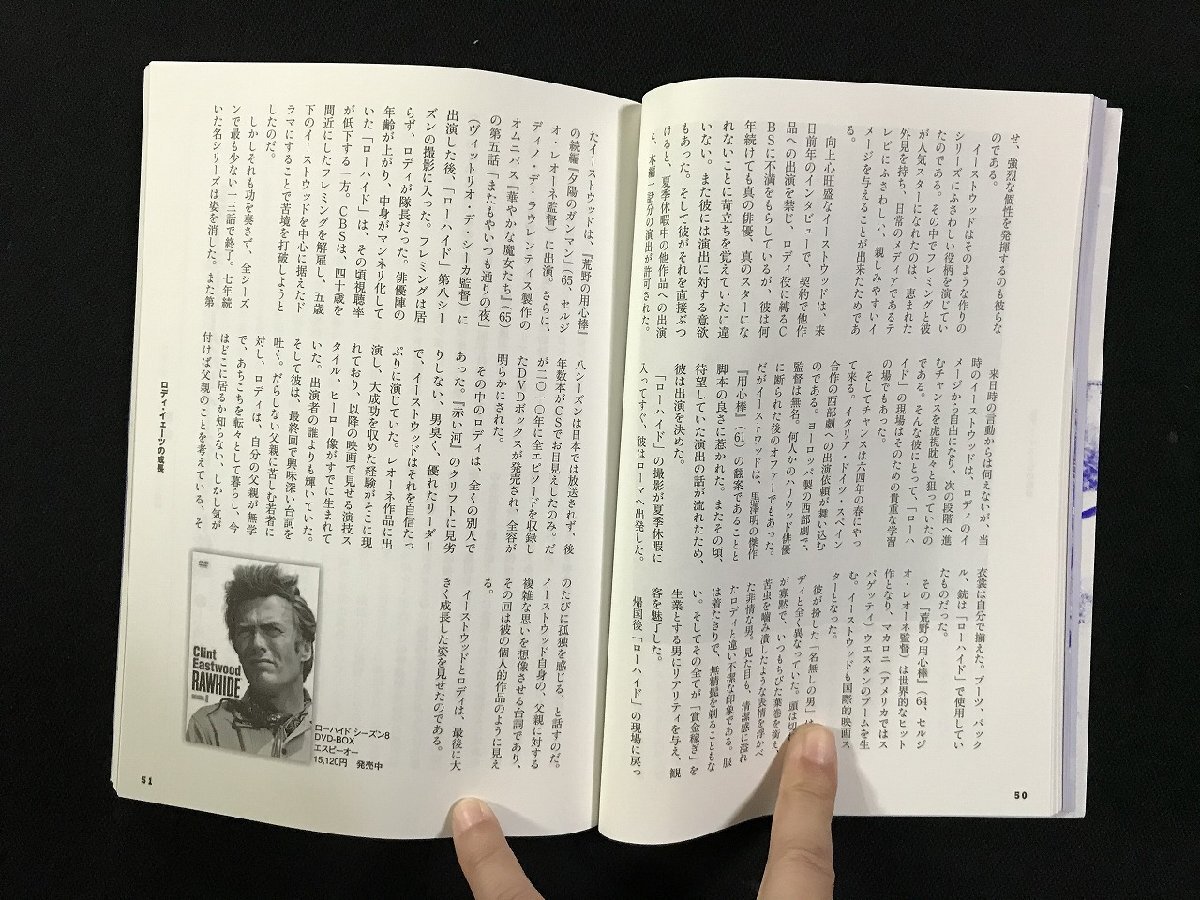 せ、強烈な個性を発揮するのも彼らな
のである。
イーストウッドはそのような作りの
シリーズにふさわしい役柄を演じてい
たのである。その中でフレミングと彼
が人気スターになれたのは、恵まれた
外見を持ち、日常のメディアであるテ
レビにふさわしい、親しみやすいイ
メージを与えることが出来たためであ
る。
向上心旺盛なイーストウッドは、来
日前年のインタビューで、契約で他作
品への出演を禁じ、ロディ役に縛るC
BSに不満をもらしているが、彼は何
年続けても真の俳優、真のスターにな
れないことに苛立ちを覚えていたに違
いない。また彼には演出に対する意欲
もあった。そして彼がそれを直接ぶつ
けると、夏季休暇中の他作品への出演
と、本編一話分の演出が許可された。
来日時の言動からは伺えないが、当
時のイーストウッドは、ロディのイ
メージから自由になり、次の段階へ進
むチャンスを虎視眈々と狙っていたの
である。そんな彼にとって、「ローハ
イド」の現場はそのための貴重な学習
の場でもあった。
そしてチャンスは六四年の春にやっ
て来る。イタリア・ドイツ・スペイン
合作の西部劇への出演依頼が舞い込む
のである。ヨーロッパ製の西部劇で、
監督は無名。何人かのハリウッド俳優
に断られた後のオファーでもあった。
だがイーストウッドは、黒澤明の傑作
『用心棒』の翻案であることと
脚本の良さに惹かれた。またその頃、
待望していた演出の話が流れたため、
彼は出演を決めた。
「ローハイド」の撮影が夏季休暇に
入ってすぐ、彼はローマへ出発した。
衣装は自分で揃えた。ブーツ、バック
ル、銃は「ローハイド」で使用してい
たものだった。
その『荒野の用心棒』（64、セルジ
オ・レオーネ監督）は世界的なヒット
作となり、マカロニ（アメリカではス
パゲッティ）ウエスタンのブームを生
む。イーストウッドも国際的映画ス
ターとなった。
彼が扮した「名無しの男」は
ディと全く異なっていた。頭は切
が寡黙で、いつもちびた葉巻を銜え、
苦虫を噛み潰したような表情を浮かべ
た非情な男。見た目も、清潔感に溢れ
たロディと違い不潔な印象である。服
は着たきりで、無精髭を剃ることもな
い。そしてその全てが「賞金稼ぎ」を
生業とする男にリアリティを与え、観
客を魅了した。
帰国後「ローハイド」の現場に戻っ
50
たイーストウッドは、『荒野の用心棒』
の続編『夕陽のガンマン』（65、セルジ
オ・レオーネ監督）に出演。さらに、
ディノ・デ・ラウレンティス製作の
オムニバス『華やかな魔女たち』（65）
の第五話「またもやいつも通りの夜」
（ヴィットリオ・デ・シーカ監督）に
出演した後、「ローハイド」第八シー
ズンの撮影に入った。フレミングは居
らず、ロディが隊長だった。俳優陣の
年齢が上がり、中身がマンネリ化して
いた「ローハイド」は、その頃視聴率
が低下する一方。CBSは、四十歳を
間近にしたフレミングを解雇し、五歳
下のイーストウッドを中心に据えたド
ラマにすることで苦境を打破しようと
したのだ。
しかしそれも功を奏さず、全シーズ
ンで最も少ない一三話で終了、七年続
いた名シリーズは姿を消した。また第
八シーズンは日本では放送されず、後
年数本がCSでお目見えしたのみ。だ
が二〇一〇年に全エピソードを収録し
たDVDボックスが発売され、全容が
明らかにされた。
その中のロディは、全くの別人で
あった。『赤い河』のクリフトに見劣
りしない、男臭く、優れたリーダー
で、イーストウッドはそれを自信たっ
ぷりに演じていた。レオーネ作品に出
演し、大成功を収めた経験がそこに現
れており、以降の映画で見せる演技ス
タイル、ヒーロー像がすでに生まれて
いた。出演者の誰よりも輝いていた。
そして彼は、最終回で興味深い台詞を
吐く。だらしない父親に苦しむ若者に
対し、ロディは、自分の父親が無学
で、あちこちを転々として暮らし、今
はどこに居るか知らない、しかし気が
付けば父親のことを考えている、そ
のたびに孤独を感じる、と話すのだ。
イーストウッド自身の、父親に対する
複雑な思いを想像させる台詞であり、
その回は彼の個人的作品のように見え
る。
イーストウッドとロディは、最後に大
きく成長した姿を見せたのである。
Clint
Eastwood
RAWHIDE
ローハイド シーズン8
DVD-BOX
エスピーオー
15,120円 発売中
ロディ・イェーツの成長
51